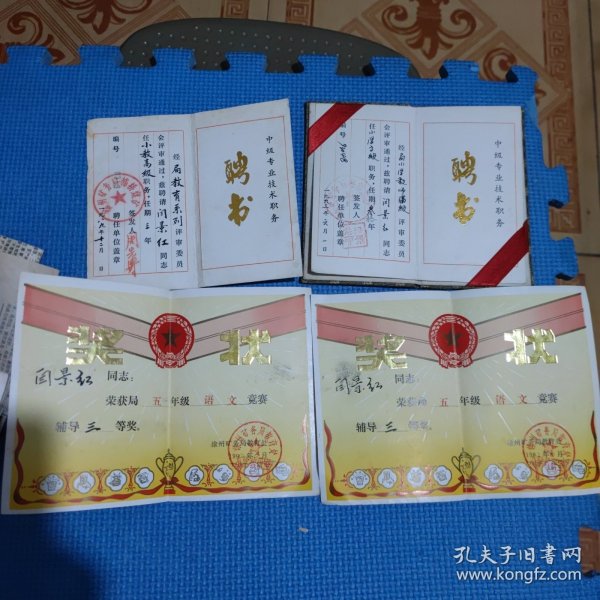 中级专业技术职务
聘书
经局教育系列评审委员
会评审通过，兹聘请闫景红同志
任小教高级职务，任期三年
签发人
聘任单位盖章
编号
中级专业技术职务
聘书
评审委员
会评审通过，兹聘请闫景红同志
职务，任期
签发人
聘任单位盖章
编号
奖状
闫景红 同志：
荣获局 五 年级 语文 竞赛
辅导 三 等奖。
奖状
闫景红 同志：
荣获局 五 年级 语文 竞赛
辅导 三 等奖。
孔夫子旧书网
www.kongfz.com